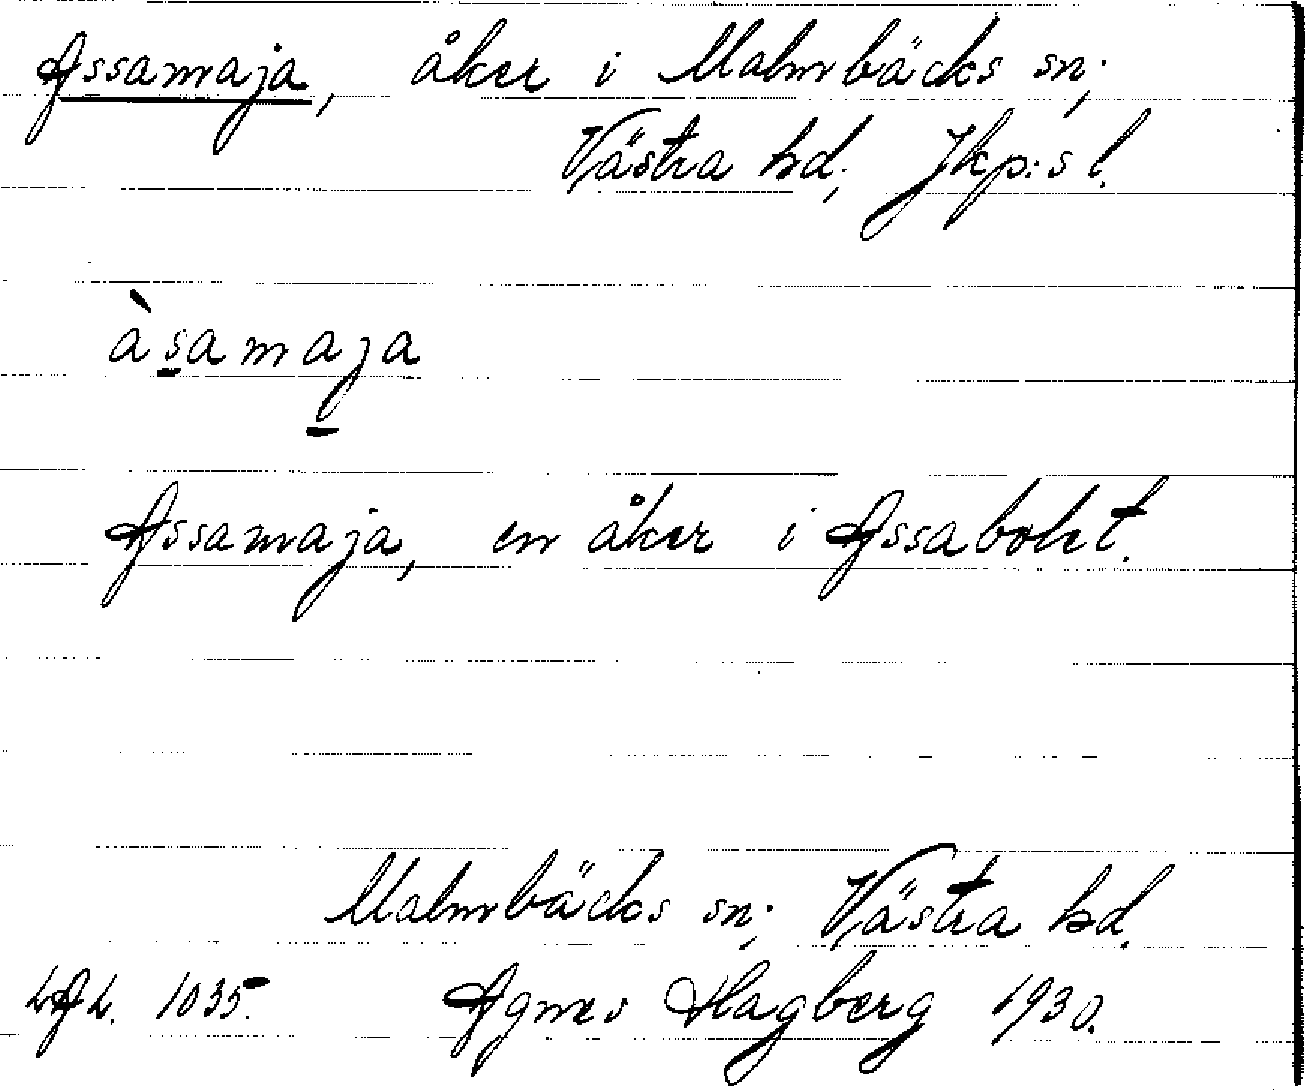 Assamaja, åker i Malmbäcks sn;
Västra hd; Jkp:s l.
àsamaja
Assamaja, en åker i Assabolet.
Malmbäcks sn; Västra hd.
LAL. 1035. Agnes Hagberg 1930.